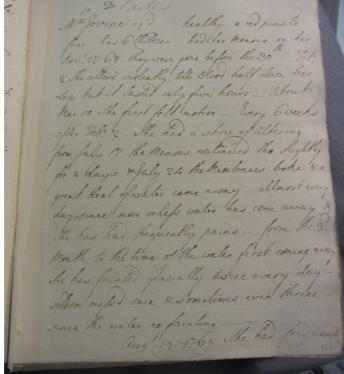 Mrs aged healthy a red purple
face has 6 Children had her menses on her
Nov. 27. 68 they were gone before the 30th Feb.
2 She altered violently, the blood half down her
legs but it lasted only five hours about
Mar 10 She first felt motion Every 6 weeks
after Feb. 2 She had a show of altering
from July 17 the Menses continued tho slightly
for 2 days & July 24 the Membranes broke & a
great deal of water came away almost every
day since more or less water has come away &
She has had frequently pains from the 3d
Month to the time of the water first coming away
She has fainted generally twice every day
seldom miss'd once & sometimes even thrice
since the water no fainting
Aug. 19. 1769 She had frequent